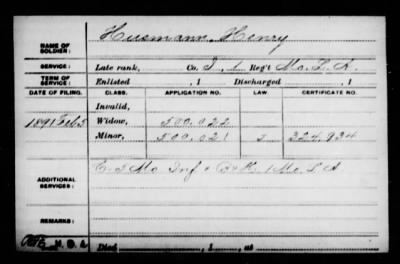 NAME OF SOLDIER: Husmann, Henry
SERVICE: Late rank, Co. I, 1 Reg't Mo. L. A.
TERM OF SERVICE: Enlisted , 1 Discharged , 1
DATE OF FILING. CLASS. APPLICATION NO. LAW. CERTIFICATE NO.
Invalid,
1891 Feb 5 Widow, 500.022
Minor, 500.021 324.934
ADDITIONAL SERVICES: Mo Inf + 1 Mo L A
REMARKS:
Died , 1 , at